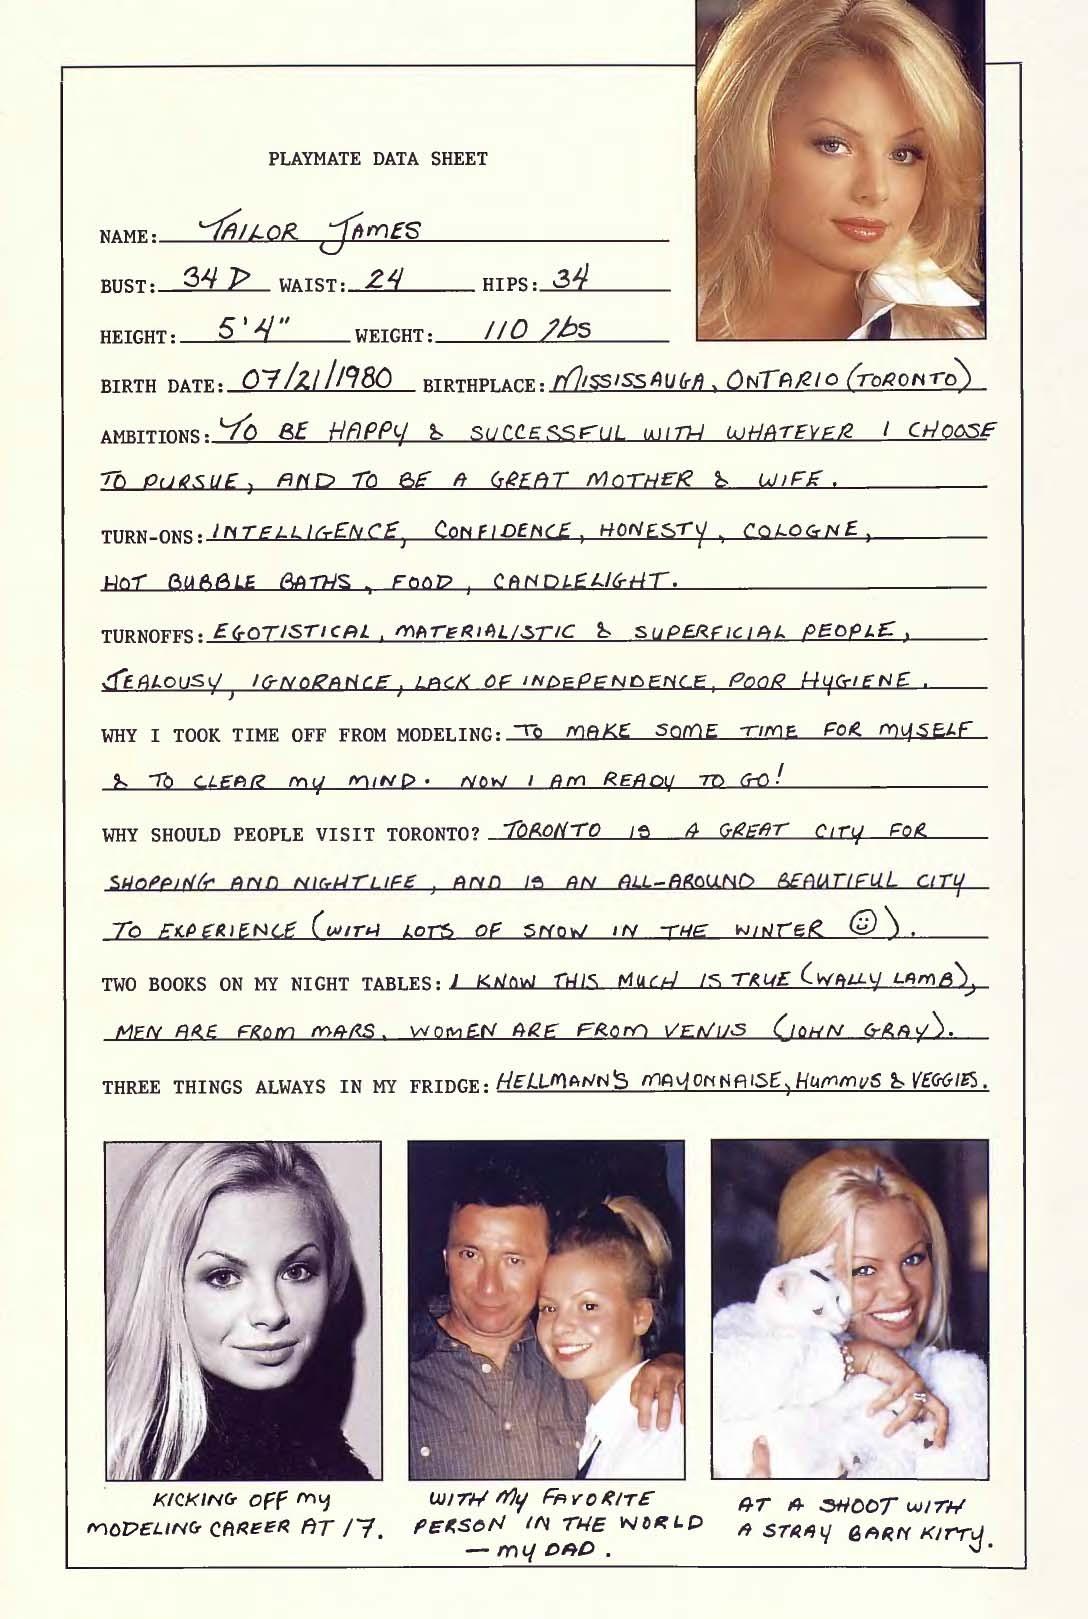 PLAYMATE DATA SHEET
NAME: TAILOR JAMES
BUST: 34 D WAIST: 24 HIPS: 34
HEIGHT: 5'4" WEIGHT: 110 lbs
BIRTH DATE: 07/21/1980 BIRTHPLACE: MISSISSAUGA, ONTARIO (TORONTO)
AMBITIONS: TO BE HAPPY & SUCCESSFUL WITH WHATEVER I CHOOSE
TO PURSUE, AND TO BE A GREAT MOTHER & WIFE.
TURN-ONS: INTELLIGENCE, CONFIDENCE, HONESTY, COLOGNE,
HOT BUBBLE BATHS, FOOD, CANDLELIGHT.
TURNOFFS: EGOTISTICAL, MATERIALISTIC & SUPERFICIAL PEOPLE,
JEALOUSY, IGNORANCE, LACK OF INDEPENDENCE, POOR HYGIENE.
WHY I TOOK TIME OFF FROM MODELING: TO MAKE SOME TIME FOR MYSELF
& TO CLEAR MY MIND. NOW I AM READY TO GO!
WHY SHOULD PEOPLE VISIT TORONTO? TORONTO IS A GREAT CITY FOR
SHOPPING AND NIGHTLIFE, AND IS AN ALL-AROUND BEAUTIFUL CITY
TO EXPERIENCE (WITH LOTS OF SNOW IN THE WINTER ☺).
TWO BOOKS ON MY NIGHT TABLES: I KNOW THIS MUCH IS TRUE (WALLY LAMB),
MEN ARE FROM MARS, WOMEN ARE FROM VENUS (JOHN GRAY).
THREE THINGS ALWAYS IN MY FRIDGE: HELLMANN'S MAYONNAISE, HUMMUS & VEGGIES.
KICKING OFF MY
MODELING CAREER AT 17.
WITH MY FAVORITE
PERSON IN THE WORLD
— MY DAD.
AT A SHOOT WITH
A STRAY BARN KITTY.